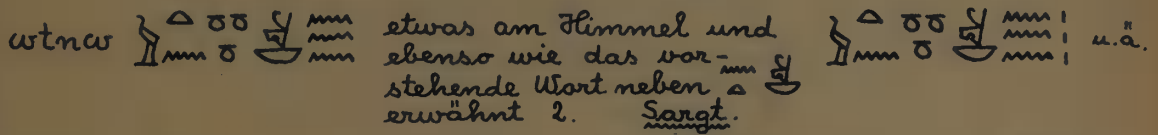 wtnw etwas am Himmel und u.ä.
ebenso wie das vor-
stehende Wort neben
erwähnt 2. Sargt.